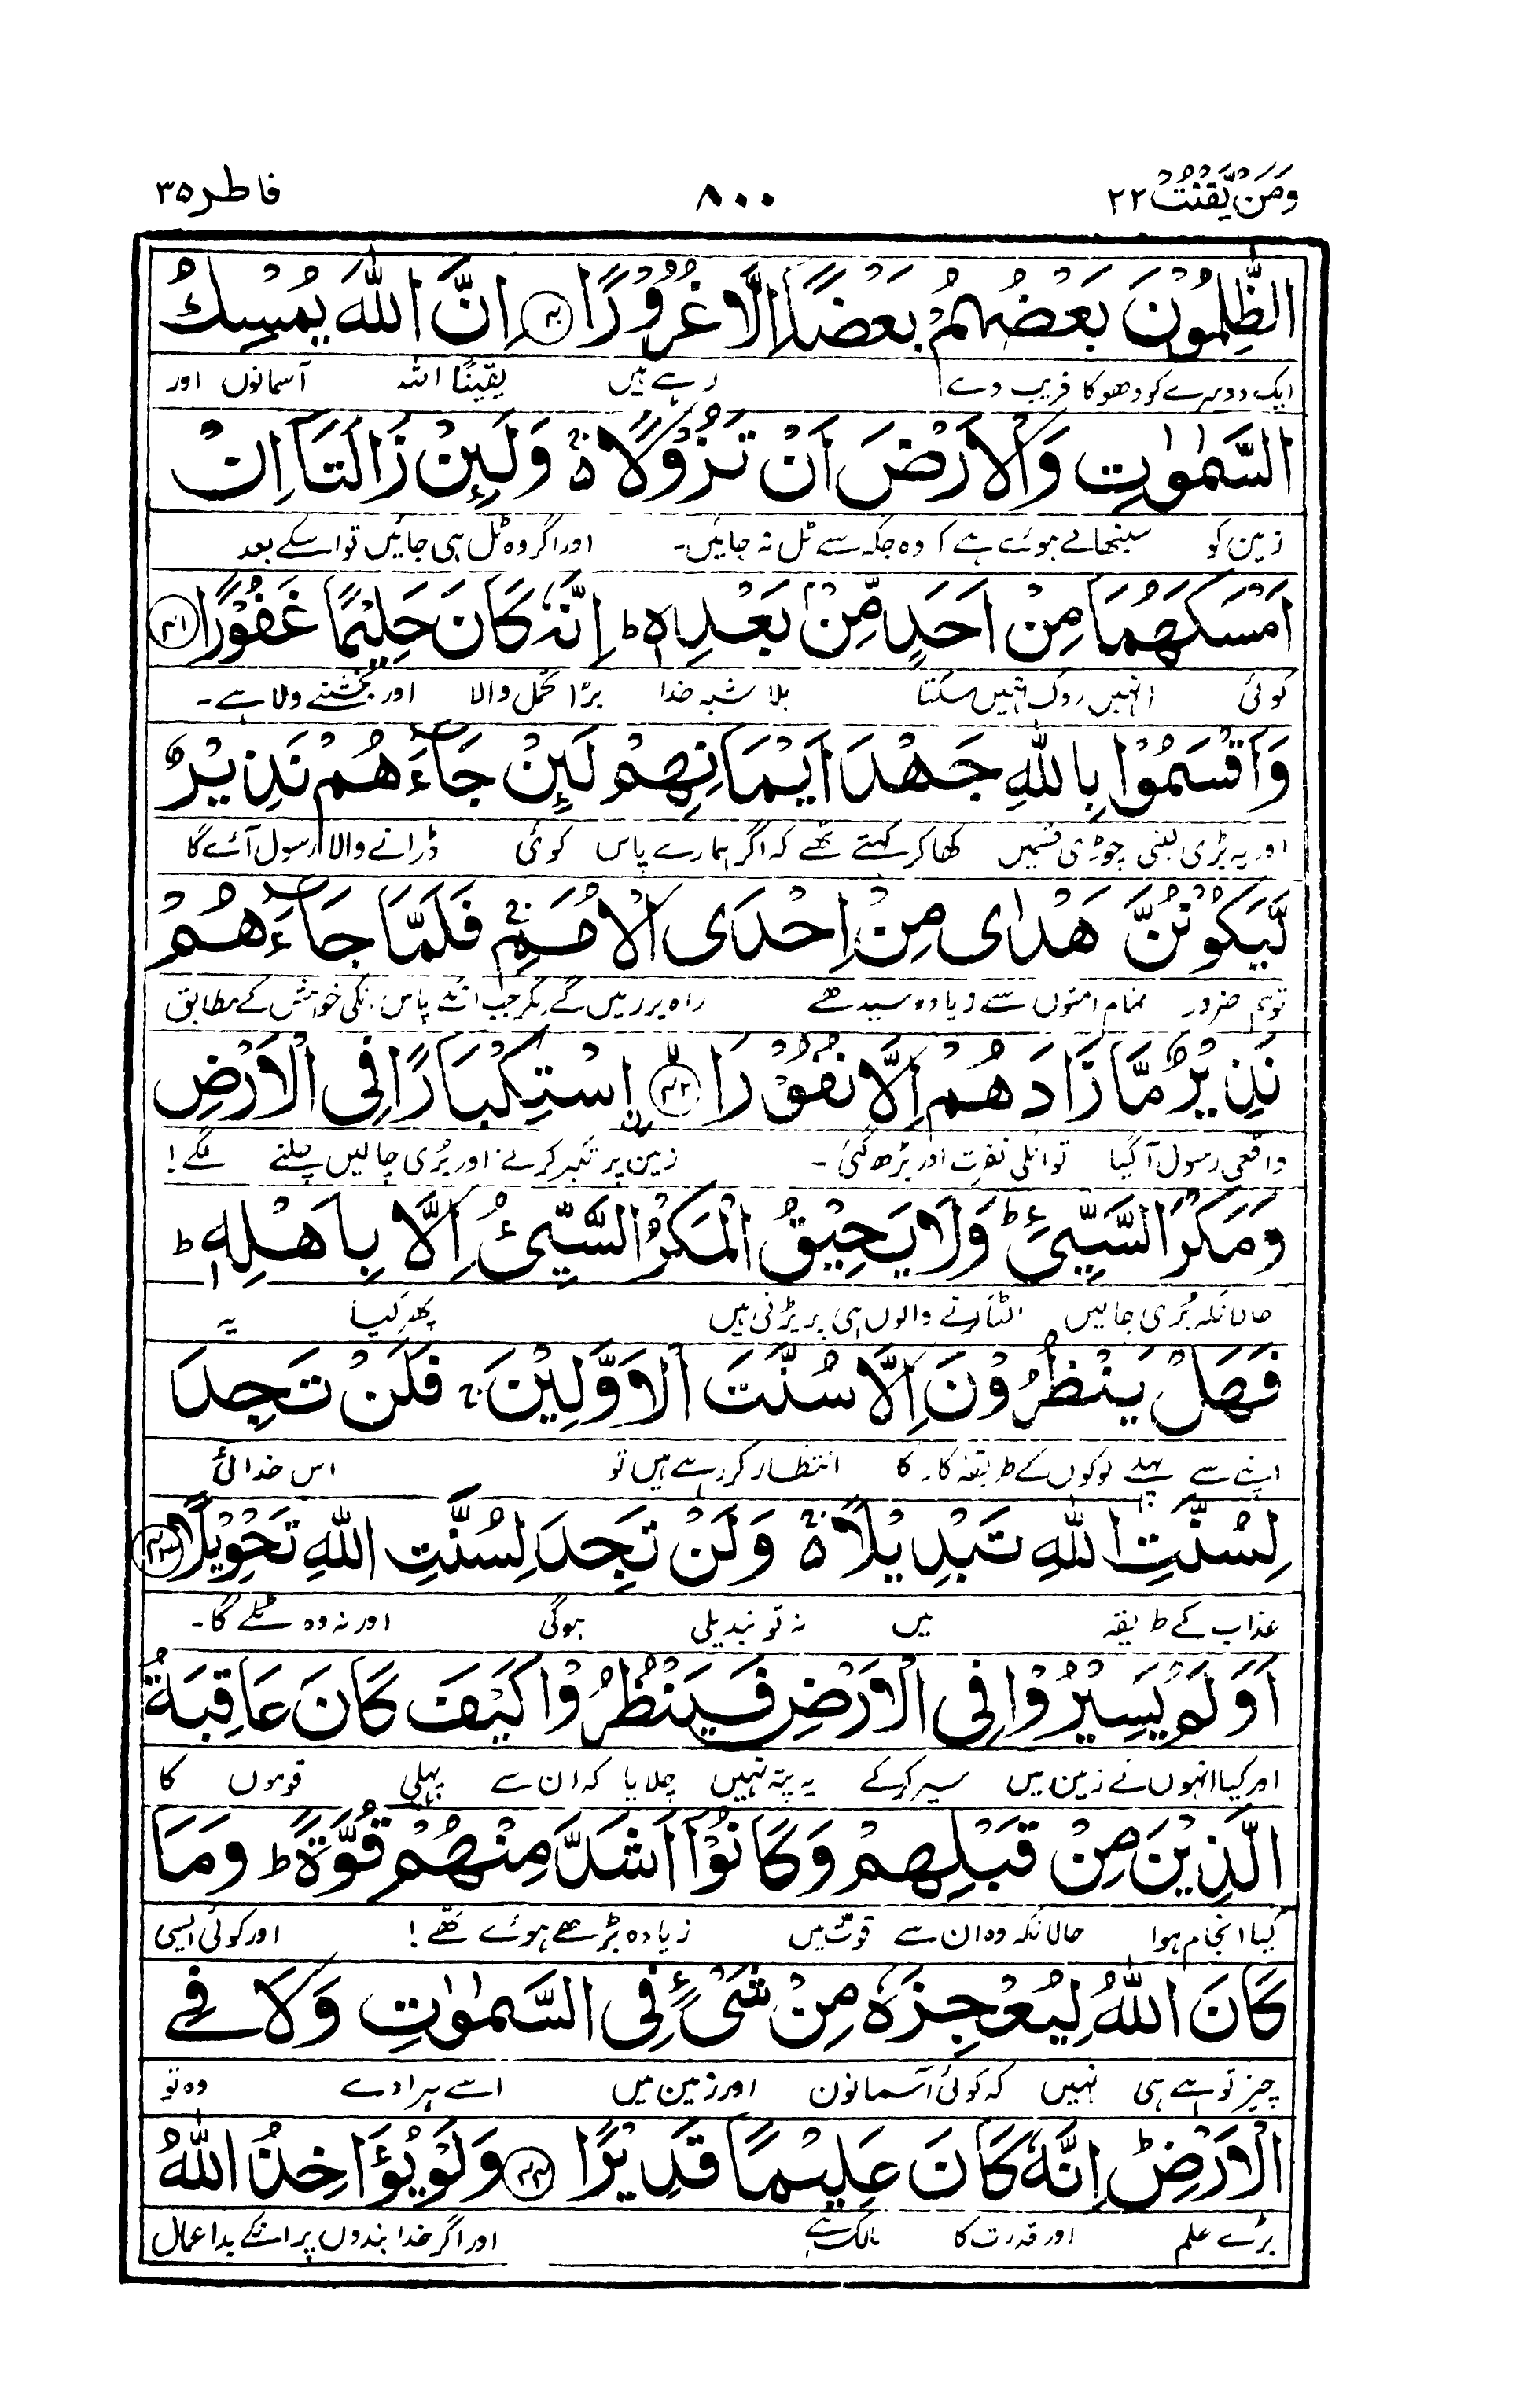 وَمَنْ يَّقْنُتْ ۲۲
۸۰۰
فاطر ۳۵
الظّٰلِمُوْنَ بَعْضُهُمْ بَعْضًا اِلَّا غُرُوْرًا ﴿۴۰﴾ اِنَّ اللّٰهَ يُمْسِكُ
ایک دوسرے کو دھوکا فریب دے رہے ہیں یقینًا اللہ آسمانوں اور
السَّمٰوٰتِ وَالْاَرْضَ اَنْ تَزُوْلَا ۚ۬ وَلَئِنْ زَالَتَاۤ اِنْ
زمین کو سنبھالے ہوئے ہے کہ وہ جگہ سے ٹل نہ جائیں۔ اور اگر وہ ٹل ہی جائیں تو اسکے بعد
اَمْسَكَهُمَا مِنْ اَحَدٍ مِّنْۢ بَعْدِهٖ ؕ اِنَّهٗ كَانَ حَلِيْمًا غَفُوْرًا ﴿۴۱﴾
کوئی انہیں روک نہیں سکتا بلا شبہ خدا بڑا تحمل والا اور بخشنے والا ہے۔
وَاَقْسَمُوْا بِاللّٰهِ جَهْدَ اَيْمَانِهِمْ لَئِنْ جَآءَهُمْ نَذِيْرٌ
اور یہ بڑی لمبی چوڑی قسمیں کھا کر کہتے تھے کہ اگر ہمارے پاس کوئی ڈرانے والا رسول آئے گا
لَّيَكُوْنُنَّ اَهْدٰى مِنْ اِحْدَى الْاُمَمِ ۚ فَلَمَّا جَآءَهُمْ
تو ہم ضرور تمام امتوں سے زیادہ سیدھے راہ پر رہیں گے مگر جب انکے پاس انکی خواہش کے مطابق
نَذِيْرٌ مَّا زَادَهُمْ اِلَّا نُفُوْرًا ﴿۴۲﴾ ۙ اسْتِكْبَارًا فِى الْاَرْضِ
واقعی رسول آگیا تو انکی نفرت اور بڑھ گئی۔ زمین پر تکبر کرنے اور بُری چالیں چلنے لگے!
وَمَكْرَ السَّيِّئِ ؕ وَلَا يَحِيْقُ الْمَكْرُ السَّيِّئُ اِلَّا بِاَهْلِهٖ ؕ
حالانکہ بُری چالیں الٹا کرنے والوں ہی پر پڑتی ہیں پھر کیا یہ
فَهَلْ يَنْظُرُوْنَ اِلَّا سُنَّتَ الْاَوَّلِيْنَ ۚ فَلَنْ تَجِدَ
اپنے سے پہلے لوگوں کے طریقہ کار کا انتظار کر رہے ہیں تو اس خدائی
لِسُنَّتِ اللّٰهِ تَبْدِيْلًا ۚ۬ وَلَنْ تَجِدَ لِسُنَّتِ اللّٰهِ تَحْوِيْلًا ﴿۴۳﴾
عذاب کے طریقہ میں نہ تو تبدیلی ہوگی اور نہ وہ ٹلے گا۔
اَوَلَمْ يَسِيْرُوْا فِى الْاَرْضِ فَيَنْظُرُوْا كَيْفَ كَانَ عَاقِبَةُ
اور کیا انہوں نے زمین میں سیر کرکے یہ پتہ نہیں چلایا کہ ان سے پہلی قوموں کا
الَّذِيْنَ مِنْ قَبْلِهِمْ وَكَانُوْۤا اَشَدَّ مِنْهُمْ قُوَّةً ؕ وَمَا
کیا انجام ہوا حالانکہ وہ ان سے قوت میں زیادہ بڑھے ہوئے تھے! اور کوئی ایسی
كَانَ اللّٰهُ لِيُعْجِزَهٗ مِنْ شَىْءٍ فِى السَّمٰوٰتِ وَلَا فِى
چیز تو ہے ہی نہیں کہ کوئی آسمانوں اور زمین میں اسے ہرا دے وہ تو
الْاَرْضِ ؕ اِنَّهٗ كَانَ عَلِيْمًا قَدِيْرًا ﴿۴۴﴾ وَلَوْ يُؤَاخِذُ اللّٰهُ
بڑے علم اور قدرت کا مالک ہے اور اگر خدا بندوں پر انکے بد اعمال